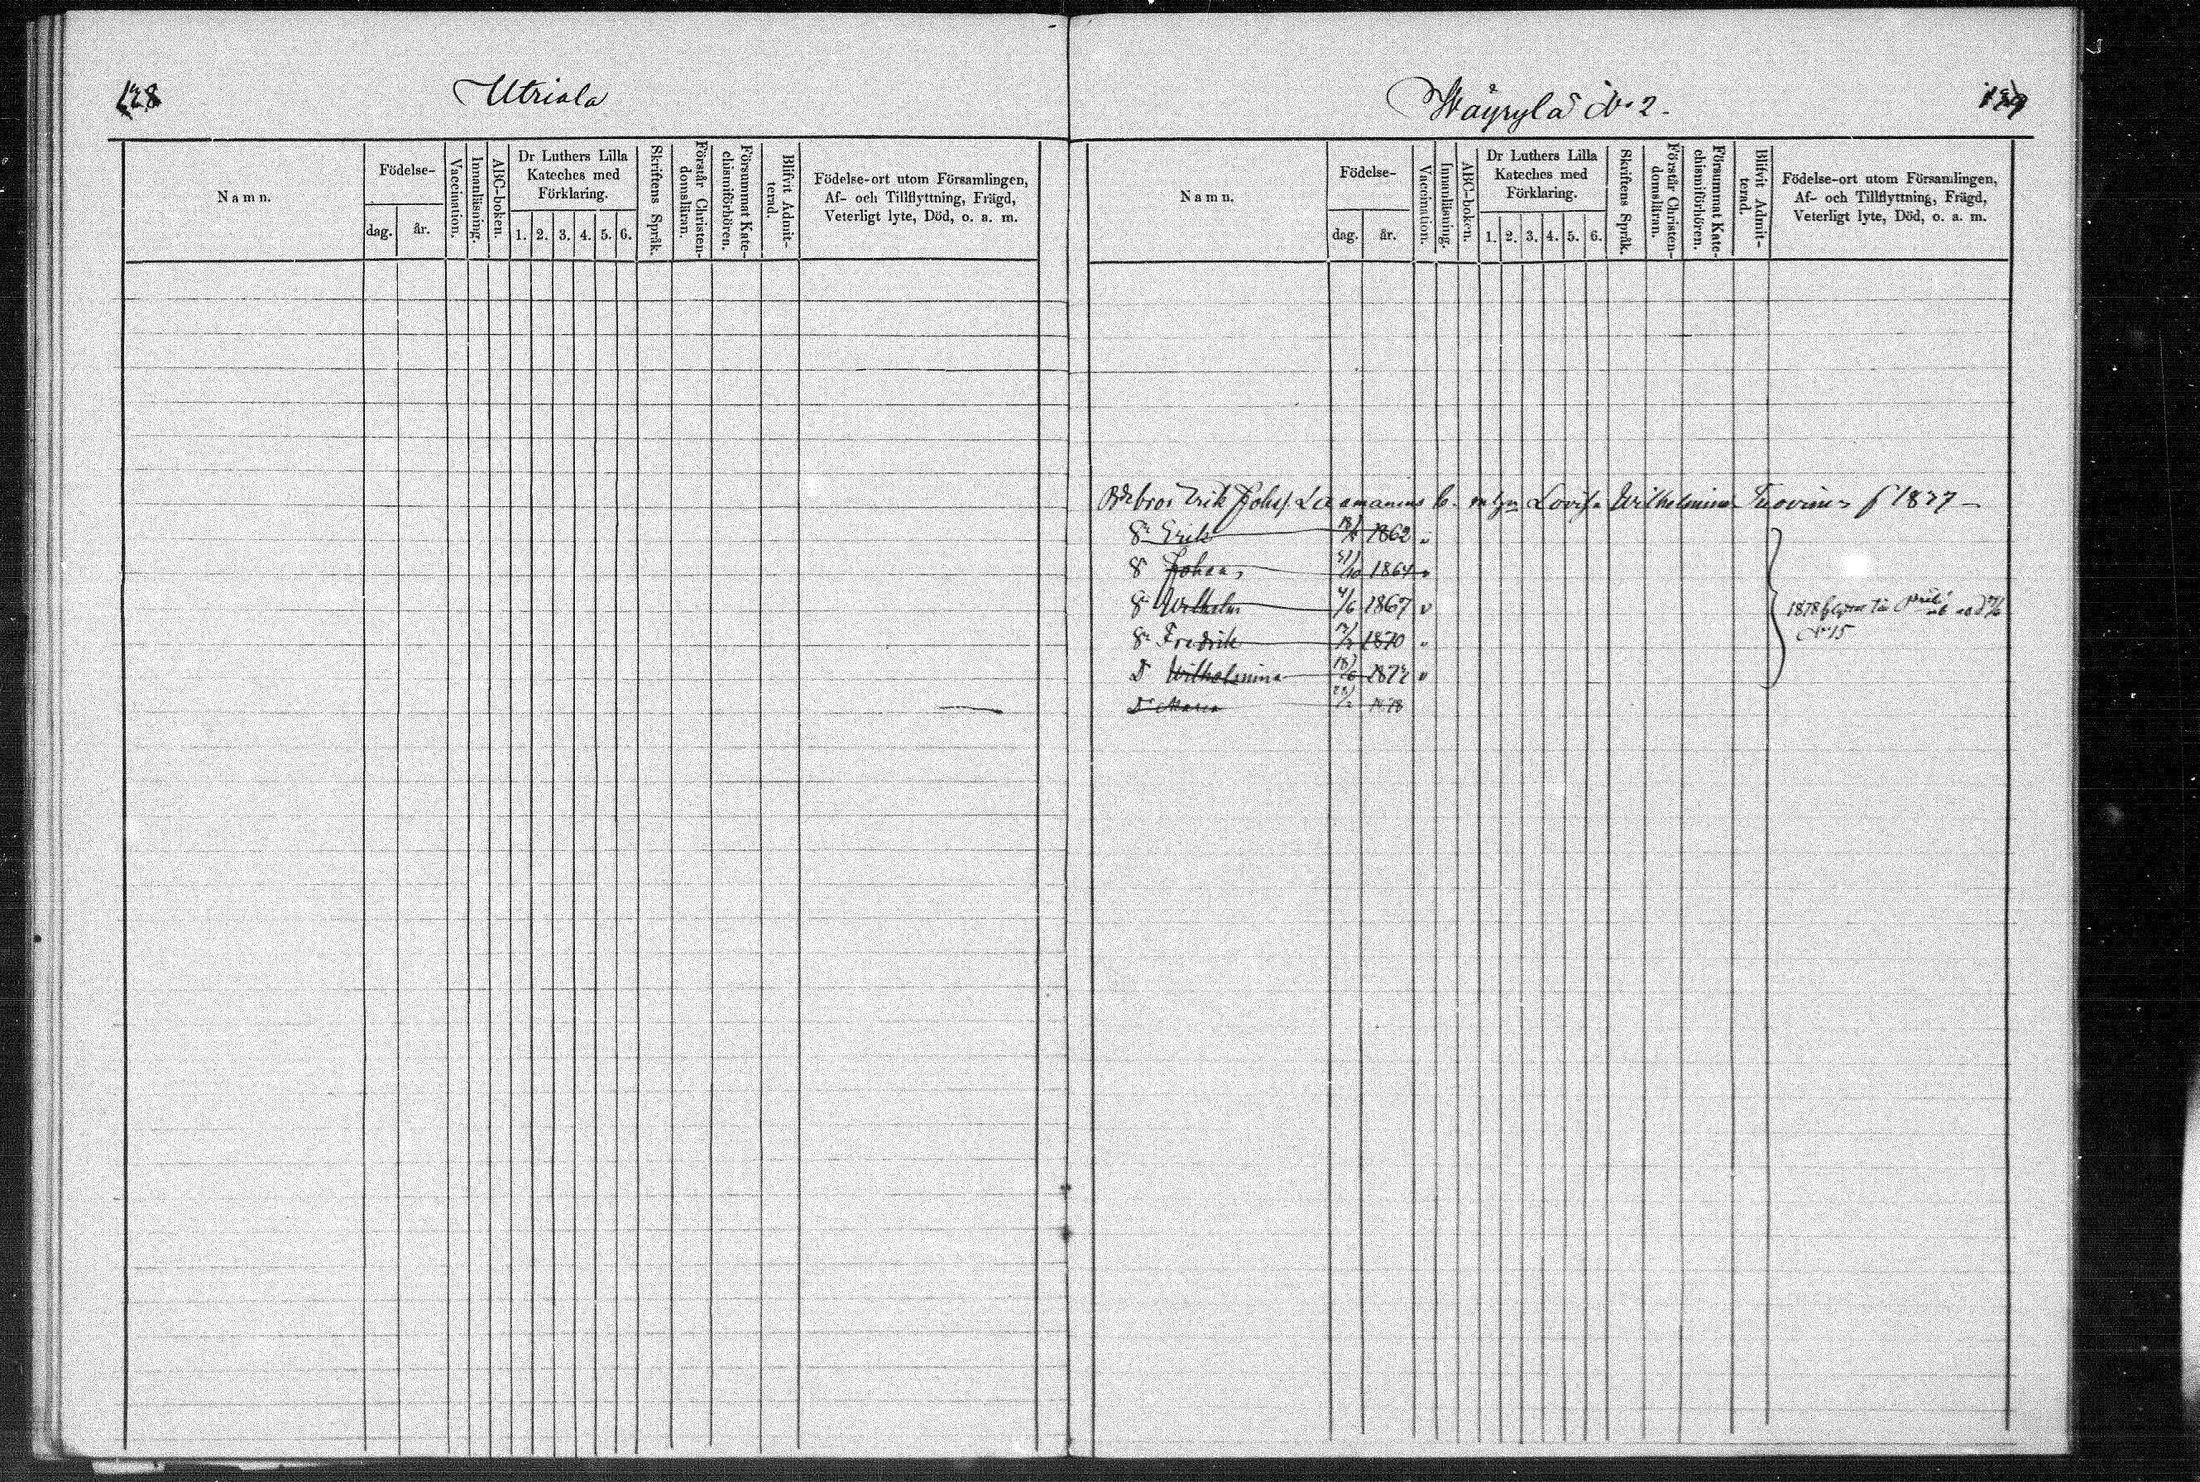 128
Utriala
Namn.
Födelse-
dag.
år.
Vaccination.
Innanläsning.
ABC-boken.
Dr Luthers Lilla
Kateches med
Förklaring.
1. 2. 3. 4. 5. 6.
Skriftens Språk.
Förstår Christen-
domslärnn.
Försummat Kate-
chismiförhören.
Blifvit Admit-
terad.
Födelse-ort utom Församlingen,
Af- och Tillflyttning, Frägd,
Veterligt lyte, Död, o. a. m.
Wäyrylä No 2.
129
Namn.
Födelse-
dag.
år.
Vaccination.
Innanläsning.
ABC-boken.
Dr Luthers Lilla
Kateches med
Förklaring.
1. 2. 3. 4. 5. 6.
Skriftens Språk.
Förstår Christen-
domslärnn.
Försummat Kate-
chismiförhören.
Blifvit Admit-
terad.
Födelse-ort utom Församlingen,
Af- och Tillflyttning, Frägd,
Veterligt lyte, Död, o. a. m.
Erik Johss. Laamanens Lovisa Wilhelmina Tuovinen f 1837
Sn Erik 1862 "
S Johan 31/10 1864 "
Sn Wilhelm 4/6 1867 "
Sn Fredrik 1870 "
D Wilhelmina 1874 "
Dr Maria 1878
1878
No 15